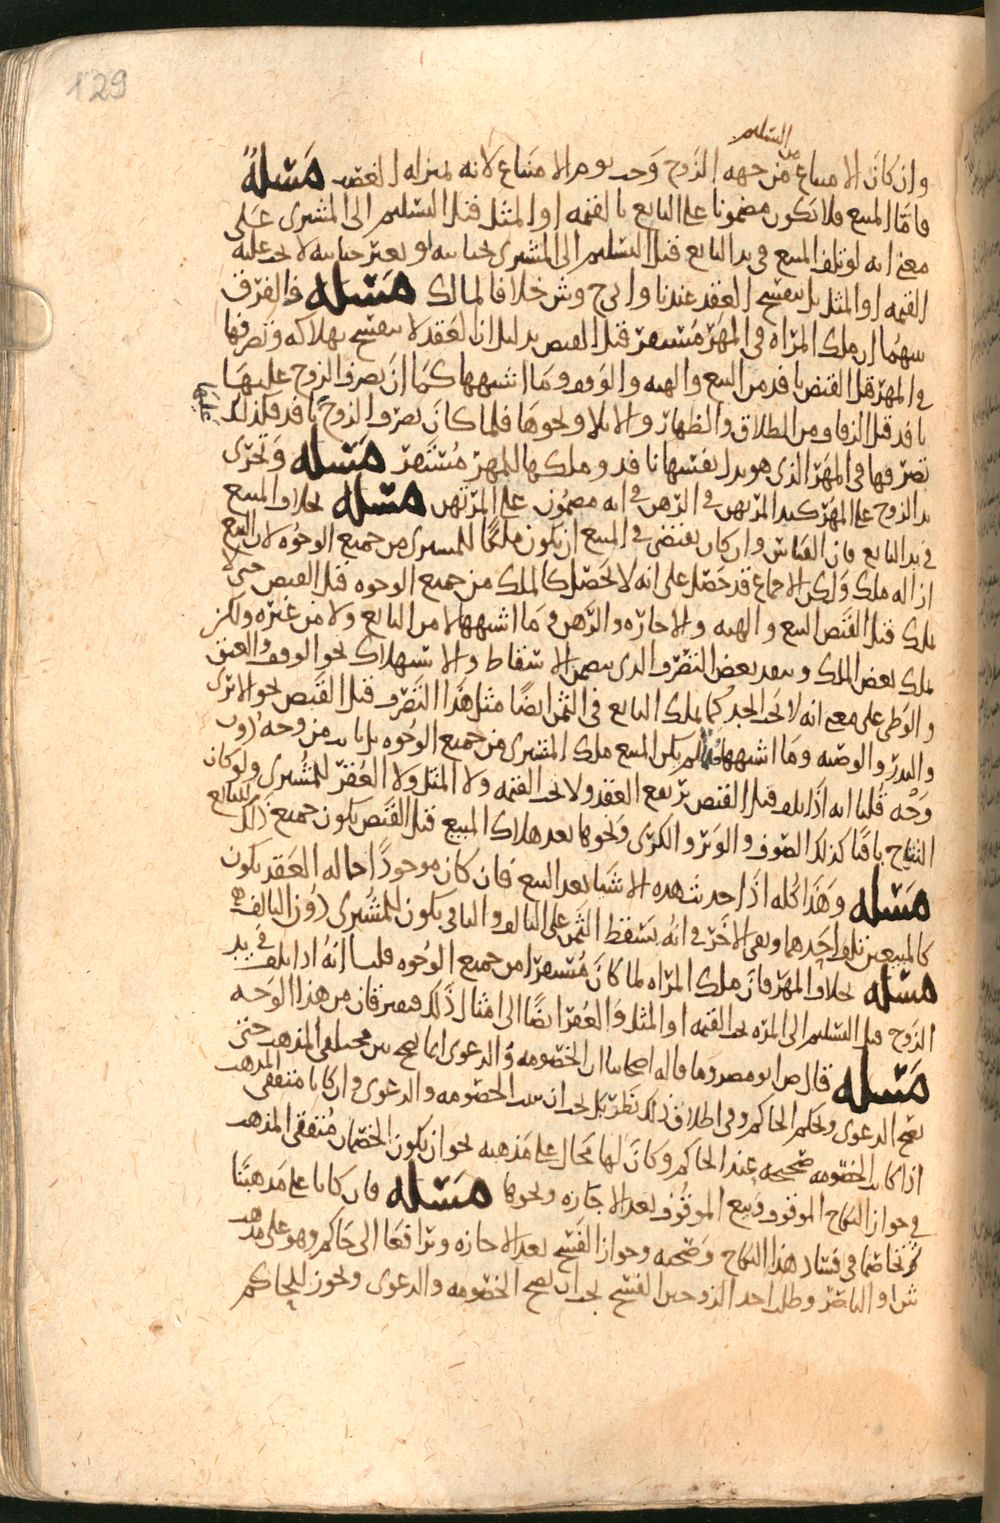 129
من التسليم
وان كان الامتناع من جهه الزوج وحب يوم الامتناع لانه بمنزله الغصب مسئله
فاما المبيع فلا يكون مضمونا على البايع بالقيمه او المثل قبل التسليم الى المشترى على
معنى انه لو تلف المبيع فى يد البايع قبل التسليم الى المشترى بجنايته او بغير جنايته لا يجب عليه
القيمه او المثل بل ينفسخ العقد عندنا و ح وش خلافا لمالك مسئله فالفرق
بينهما ان ملك المراه فى المهر مستقر قبل القبض بدليل ان العقد لا ينفسخ بهلاكه وتصرفها
فى المهر قبل القبض نافد من البيع والهبه والوقف وما اشبهها كما ان تصرف الزوج عليها
نافد قبل الزفاف من الطلاق والظهار والايلا ونحوها فلما كان تصرف الزوج نافد فكذلك
تصرفها فى المهر الذى هو بدل نفسها نافد وملكها للمهر مستقر مسئله وتجرى
يد الزوج على المهر كيد المرتهن فى الرهن فى انه مضمون على المرتهن مسئله بخلاف المبيع
فى يد البايع فان القياس وان كان يقتضى فى المبيع ان يكون ملكا للمشترى من جميع الوجوه لان البيع
ازاله ملك ولكن الاجماع قد حصل على انه لا يحصل كالملك من جميع الوجوه قبل القبض حتى لا
يملك قبل القبض البيع والهبه والاجاره والرهن وما اشبهها لا من البايع ولا من غيره ولكن
يملك بعض الملك وينفد بعض التصرف الذى يتضمن الاسقاط والاستهلاك نحو الوقف والعتق
والوطى على معنى انه لا يجب الحد كما يملك البايع فى الثمن ايضا مثل هذا التصرف قبل القبض نحو الابرى
والنذر والوصيه وما اشبهها فلما لم يكن المبيع ملك المشترى من جميع الوجوه بل ثابت من وجه دون
وجه قلنا انه اذا تلف قبل القبض يرتفع العقد ولا يجب القيمه ولا المثل ولا العقر للمشترى ولو كان
النتاج باقيا كذلك الصوف والوبر والكرى ونحوها بعد هلاك المبيع قبل القبض يكون جميع ذلك للبايع
مسئله وهذا كله اذا حدثت هذه الاشيا بعد البيع فان كان موجودا حاله العقد يكون
كالمبيعين تلف احدهما وبقى الاخر فى انه يسقط الثمن على التالف والباقى يكون للمشترى دون التالف
مسئله بخلاف المهر فان ملك المراه لما كان مستقرا من جميع الوجوه قلنا انه اذا تلف فى يد
الزوج قبل التسليم الى المراه يجب القيمه او المثل والعقر ايضا الى امثال ذلك فيفترقان من هذا الوجه
مسئله قال ص ابو مضر وما قاله اصحابنا ان الخصومه والدعوى انما يصح بين مختلفى المذهب حتى
يصح الدعوى وبحكم الحاكم وفى اطلاق ذلك نظر بل يجب ان يثبت الخصومه والدعوى وان كانا متفقى المذهب
اذا كانت الخصومه صحيحه عند الحاكم وكان لها مجال على مذهبه نحو ان يكون الخصمان متفقى المذهب
فى جواز النكاح الموقوف وبيع الموقوف بعد الاجازه ونحوها مسئله فان كانا على مذهبنا
ثم تخاصما فى فساد هذا النكاح وصحته وجواز الفسخ بعد الاجازه وترافعا الى حاكم وهو على مذهب
ش او الناصر وطلب احد الزوجين الفسخ يجب ان يصح الخصومه والدعوى ويجوز للحاكم